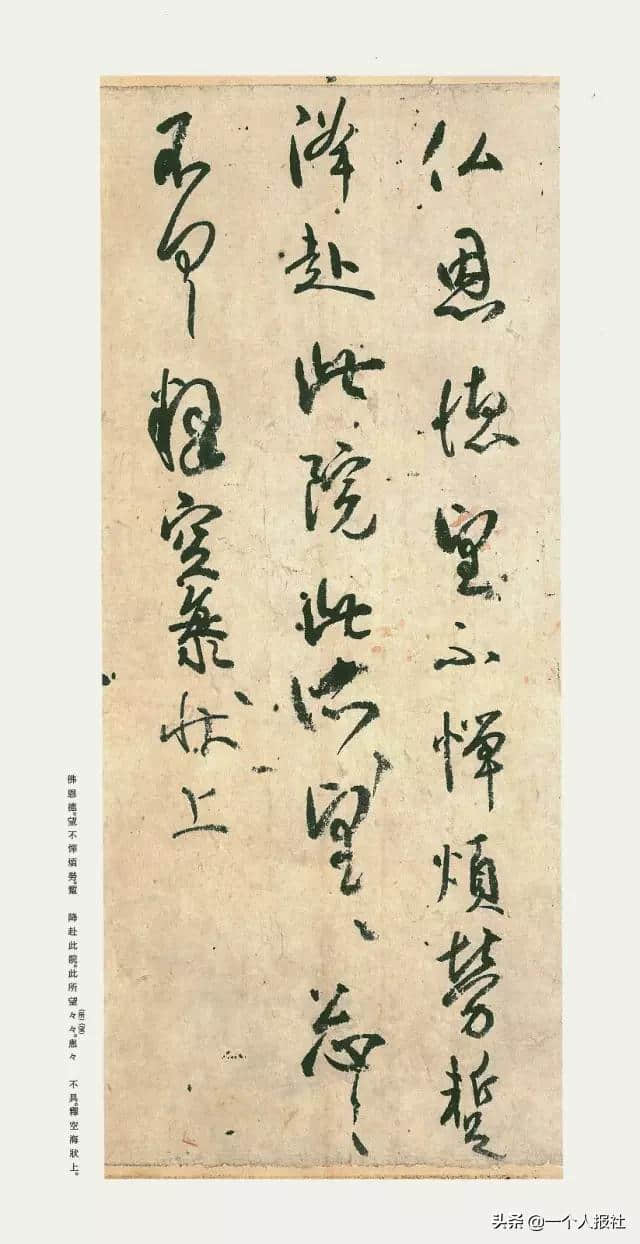 仏恩徳望不憚煩勞蹔
降赴此院此所望〻忩〻
不具釋空海狀上
佛恩德。望不憚煩勞。蹔 降赴此院。此所望々々。悤々 不具。釋空海狀上。
头条 @一个人报社